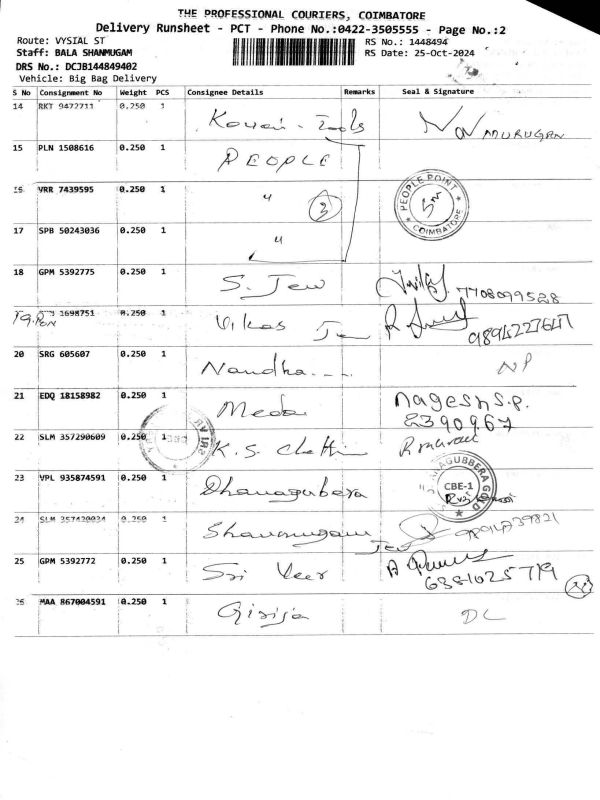 THE PROFESSIONAL COURIERS, COIMBATORE
Delivery Runsheet - PCT - Phone No.:0422-3505555 - Page No.:2
Route: VYSIAL ST
RS No.: 1448494
Staff: BALA SHANMUGAM
RS Date: 25-Oct-2024
DRS No.: DCJB144849402
Vehicle: Big Bag Delivery
S No Consignment No Weight PCS Consignee Details Remarks Seal & Signature
14 RKT 9472711 0.250 1 MURUGAN
15 PLN 1508616 0.250 1 PEOPLE
16 VRR 7439595 0.250 1 " 3 PEOPLE POINT COIMBATORE
17 SPB 50243036 0.250 1 "
18 GPM 5392775 0.250 1 S. Jew 7708099528
19 1698751 0.250 1 Vikas Jew
20 SRG 605607 0.250 1 Nandha... NP
21 EDQ 18158982 0.250 1 Meda nagesh S.P. 2390967
22 SLM 357290609 0.250 1 K.S. Chetti
23 VPL 935874591 0.250 1 Dhanagubera CBE-1
24 SLM 357420034 0.250 1 Shanmugam Jew
25 GPM 5392772 0.250 1 Sri Veer 6381025719
26 MAA 867004591 0.250 1 Girija DL